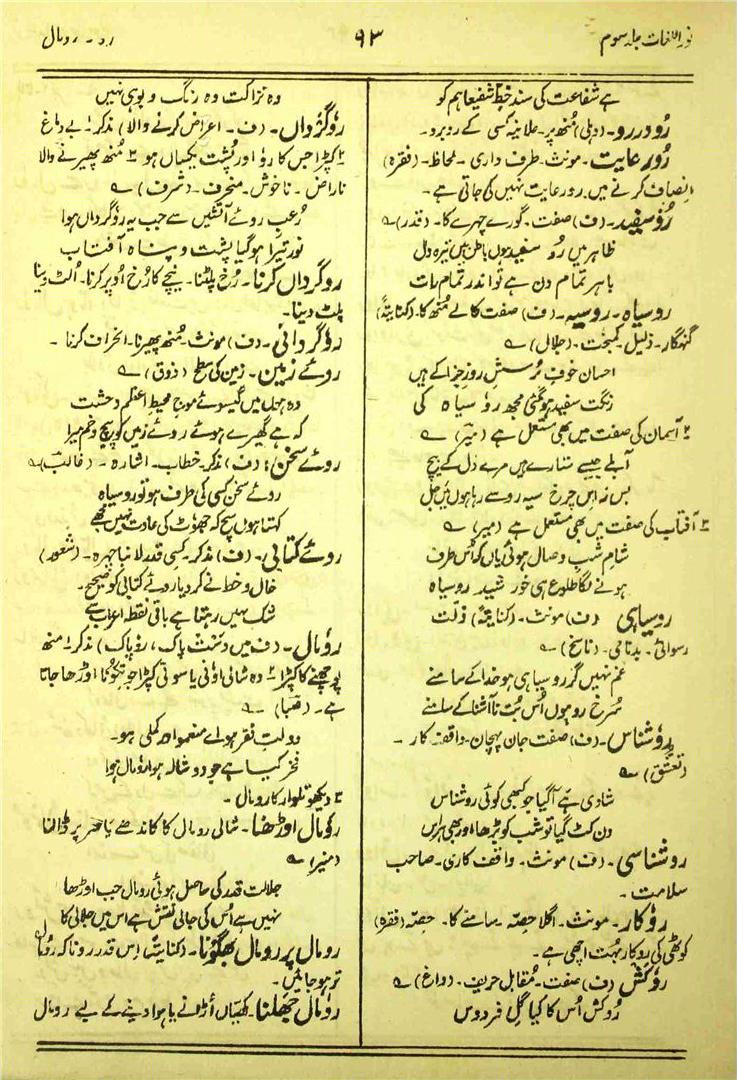 نور اللغات جلد سوم
۹۳
رو - رومال
ہے شفاعت کی سند خط شفیعا ہم کو
رُو در رو - (دہلی) مُنھ پر - علانیہ کسی کے روبرو -
رُو رعایت - مونث - طرف داری - لحاظ - (فقرہ)
انصاف کرنے میں رو رعایت نہیں کی جاتی ہے -
رُو سفید - (ف) صفت - گورے چہرے کا - (قدر) ؎
ظاہر میں رو سفید ہوں باطن میں تیرہ دل
باہر تمام دن ہے تو اندر تمام رات
روسیاہ - روسیہ - (ف) صفت کالے مُنھ کا - (کنایتہً)
گنہگار - ذلیل - کمبخت - (جلال) ؎
احسان خوفِ پُرسشِ روزِ جزا کے ہیں
رنگت سفید ہو گئی مجھ رو سیاہ کی
۲ آسمان کی صفت میں بھی مستعمل ہے (میر) ؎
آبلے جیسے ستارے ہیں مرے دل کے بیچ
بس نہ اس چرخ سیہ رو سے رہا ہوں میں جل
۳ آفتاب کی صفت میں بھی مستعمل ہے (میر) ؎
شام شب وصال ہوئی یاں کہ اُس طرف
ہونے لگا طلوع ہی خورشید روسیاہ
روسیاہی (ف) مونث - (کنایتہً) ذلّت
رسوائی - بدنامی - (ناسخ) ؎
غم نہیں گر روسیاہی ہو خدا کے سامنے
سُرخ رو ہوں اُس بُت نا آشنا کے سامنے
رُوشناس - (ف) صفت جان پہچان - واقف کار -
(تعشق) ؎
شادی ہے آگیا جو کبھی کوئی روشناس
دن کٹ گیا تو شب کو بڑھا اور بھی ہراس
روشناسی - (ف) مونث - واقف کاری - صاحب
سلامت -
رُوکار - مونث - اگلا حِصّہ - سامنے کا - حِصّہ (فقرہ)
کوٹھی کی روکار بہت اچھی ہے -
رُوکش (ف) صفت - مُقابل حریف - (داغ) ؎
رُوکش اُس کا کیا گل فردوس
وہ نزاکت وہ رنگ و بو ہی نہیں
رُوگرداں - (ف - اعراض کرنے والا) مذکر ۱ بے دماغ
۲ کپڑا جس کا رو اور پُشت یکساں ہو ۳ مُنھ پھیرنے والا
ناراض - ناخوش - منحرف - (شرف) ؎
رُعبِ روئے آتشیں سے جب یہ روگرداں ہوا
نور تیرا ہو گیا پشت و پناہ آفتاب
روگرداں کرنا - رُخ پلٹنا - نیچے کا رُخ اُوپر کرنا - اُلٹ دینا
پلٹ دینا -
رُوگردانی - (ف) مونث - مُنھ پھیرنا - انحراف کرنا -
روئے زمین - زمین کی سطح (ذوق) ؎
وہ ہوں میں گیسوئے موج محیط اعظم وحشت
کہ ہے گھیرے ہوئے روئے زمیں کو پیچ و خم میرا
روئے سُخن (ف) مذکر - خطاب - اشارہ - (غالب) ؎
روئے سخن کسی کی طرف ہو تو روسیاہ
کہتا ہوں سچ کہ جھوٹ کی عادت نہیں مجھے
روئے کتابی - (ف) مذکر - کسی قدر لانبا چہرہ - (شعور)
خال و خط نے کر دیا روئے کتابی کو صحیح -
شک نہیں رہتا ہے باقی نقطہ اعراب سے
رومال - (ف میں دست پاک، رو پاک) مذکر ۱ مُنھ
پونچھنے کا کپڑا ۲ وہ شالی اونی یا سوتی کپڑا جو تکونا اوڑھا جاتا
ہے - (صبا) ؎
دولتِ فقر ہو اے منعمو اور کملی ہو -
فخر کیا ہے جو دوشالہ ہوا رومال ہوا
۳ دیکھو تلوار کا رومال -
رُومال اوڑھنا - شالی رومال کا کاندھے یا سر پر ڈالنا
(منیر) ؎
جلالت قدر کی حاصل ہوئی رومال جب اوڑھا
نہیں ہے اُس کی جالی نقش ہے اس میں جلالی کا
رومال پر رومال بھگونا - (کنایتہً) اس قدر رونا کہ رومال
تر ہو جائیں -
رُومال جھلنا - مکھیاں اُڑانے یا ہوا دینے کے لیے رومال